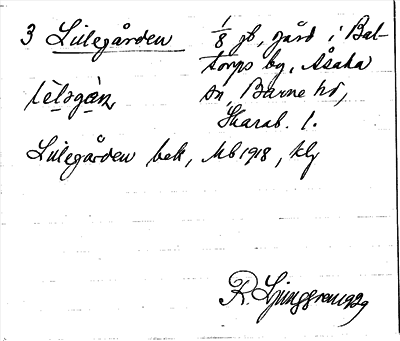 3 Lillegården 1/8 gb, gård i Bal-
torps by, Åsaka
sn, Barne hd,
Skarab. l.
Lillegården bek, Mb 1918, klg
R. Ljunggren 1929